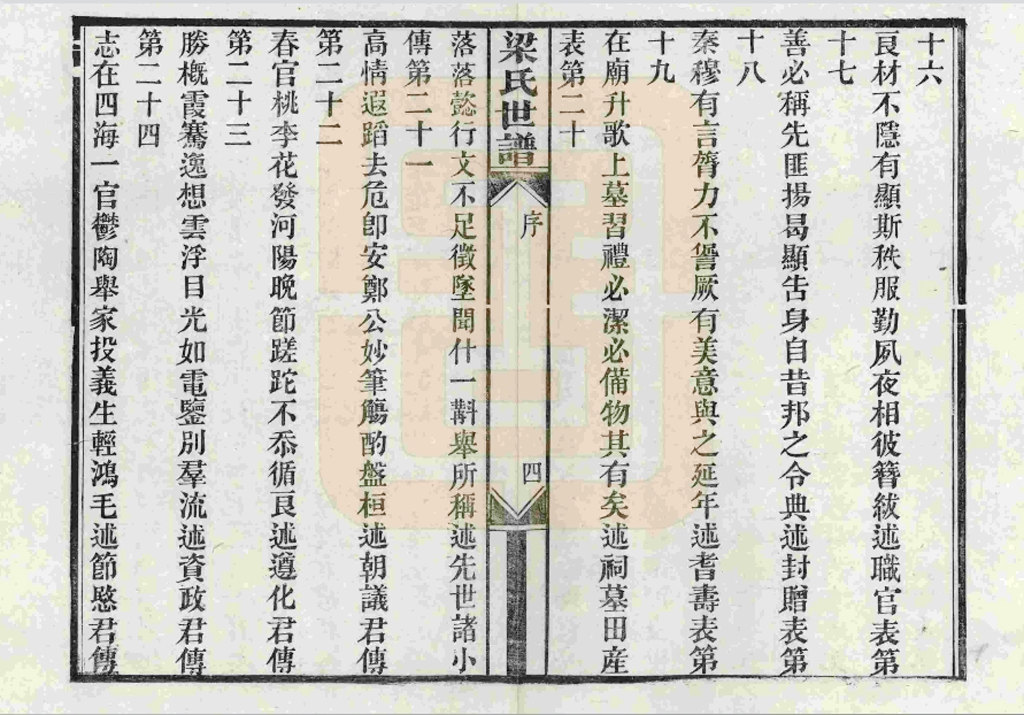 十六
良材不隱有顯斯秩服勤夙夜相彼簪紱述職官表第
十七
善必稱先匪揚曷顯吿身自昔邦之令典述封贈表第
十八
秦穆有言膂力不諐厥有美意與之延年述耆壽表第
十九
在廟升歌上墓習禮必潔必備物其有矣述祠墓田産
表第二十
梁氏世譜
序
四
落落懿行文不足徵墜聞什一斠舉所稱述先世諸小
傳第二十一
高情遐蹈去危卽安鄭公妙筆觴酌盤桓述朝議君傳
第二十二
春官桃李花發河陽晚節蹉跎不忝循良述遵化君傳
第二十三
勝槪霞騫逸想雲浮目光如電鑒別羣流述資政君傳
第二十四
志在四海一官鬱陶舉家投義生輕鴻毛述節愍君傳